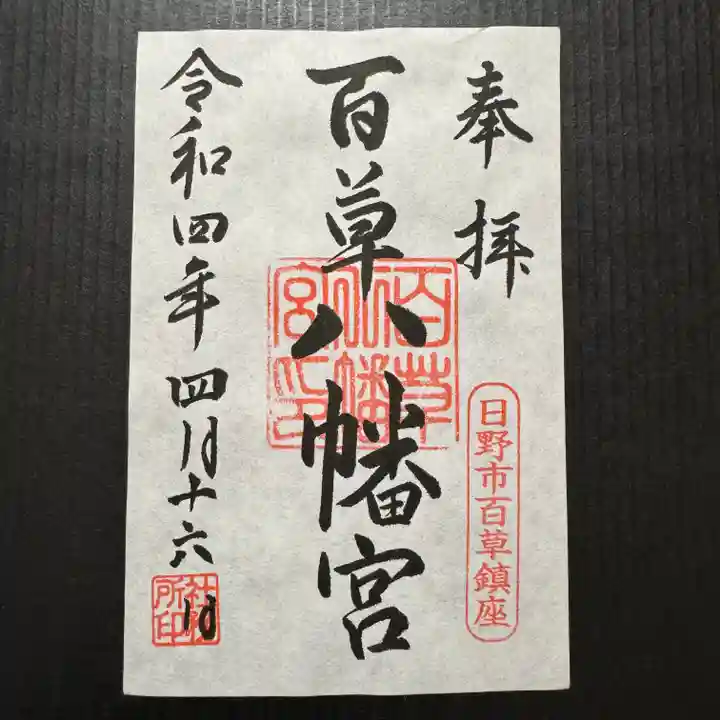 奉拝
日野市百草鎮座
百草八幡宮
百草八幡宮印
令和四年四月十六日
社務所印